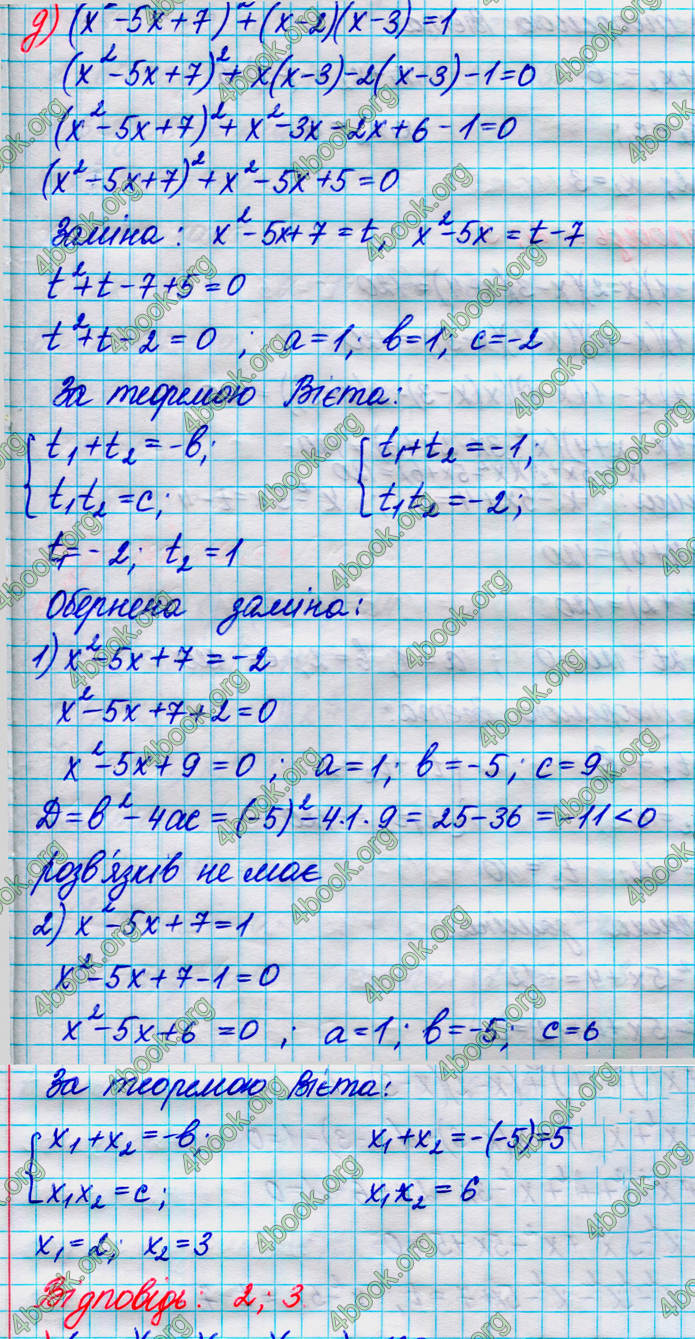 д) (x² - 5x + 7)² + (x - 2)(x - 3) = 1
(x² - 5x + 7)² + x(x - 3) - 2(x - 3) - 1 = 0
(x² - 5x + 7)² + x² - 3x - 2x + 6 - 1 = 0
(x² - 5x + 7)² + x² - 5x + 5 = 0
Заміна: x² - 5x + 7 = t, x² - 5x = t - 7
t² + t - 7 + 5 = 0
t² + t - 2 = 0 ; a = 1; b = 1; c = -2
За теоремою Вієта:
t₁ + t₂ = -b; t₁ + t₂ = -1;
t₁t₂ = c; t₁t₂ = -2;
t₁ = -2; t₂ = 1
Обернена заміна:
1) x² - 5x + 7 = -2
x² - 5x + 7 + 2 = 0
x² - 5x + 9 = 0 ; a = 1; b = -5; c = 9
D = b² - 4ac = (-5)² - 4·1·9 = 25 - 36 = -11 < 0
розв'язків не має
2) x² - 5x + 7 = 1
x² - 5x + 7 - 1 = 0
x² - 5x + 6 = 0 ; a = 1; b = -5; c = 6
За теоремою Вієта:
x₁ + x₂ = -b; x₁ + x₂ = -(-5) = 5
x₁x₂ = c; x₁x₂ = 6
x₁ = 2; x₂ = 3
Відповідь: 2; 3
4book.org